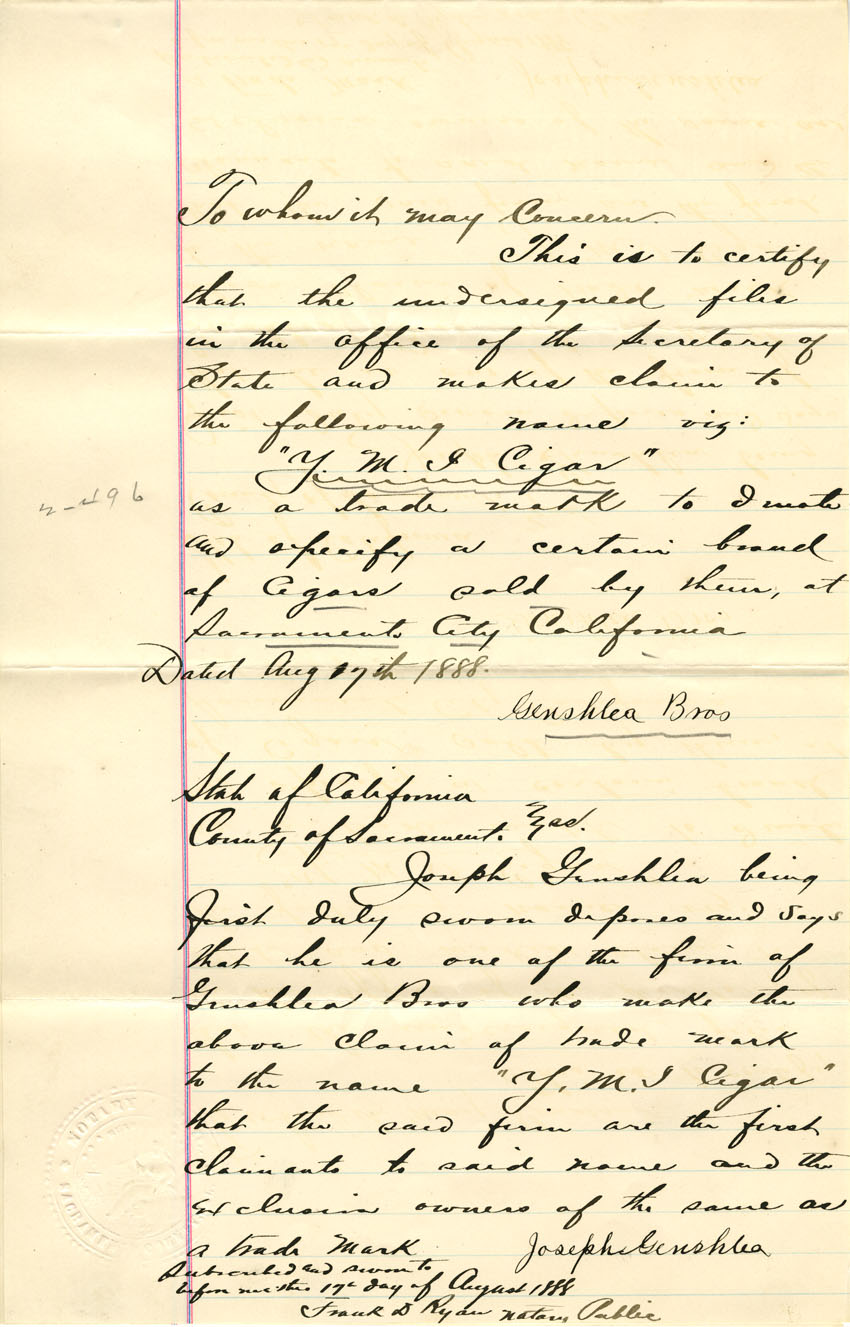 To whom it may Concern.
This is to certify
that the undersigned files
in the office of the Secretary of
State and makes claim to
the following name viz:
"Y. M. I Cigar"
as a trade mark to Denote
and specify a certain brand
of Cigars sold by them, at
Sacramento City California
Dated Aug 17th 1888.
Genshlea Bros
State of California
County of Sacramento. } ss.
Joseph Genshlea being
first duly sworn deposes and says
that he is one of the firm of
Genshlea Bros who make the
above claim of trade mark
to the name "Y. M. I Cigar"
that the said firm are the first
claimants to said name and the
exclusive owners of the same as
a trade mark
Joseph Genshlea
Subscribed and sworn to
before me this 17th day of August 1888
Frank D Ryan notary Public
NOTARY